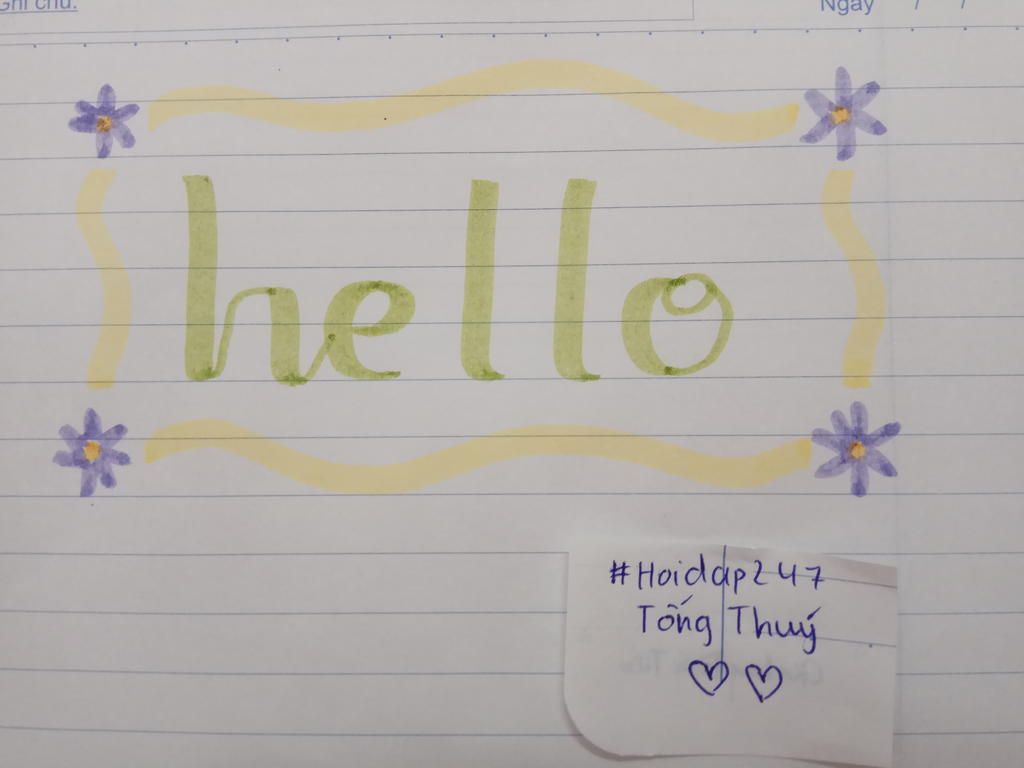 Ghi chú:
Ngày / /
hello
#Hoidap247
Tống Thuý